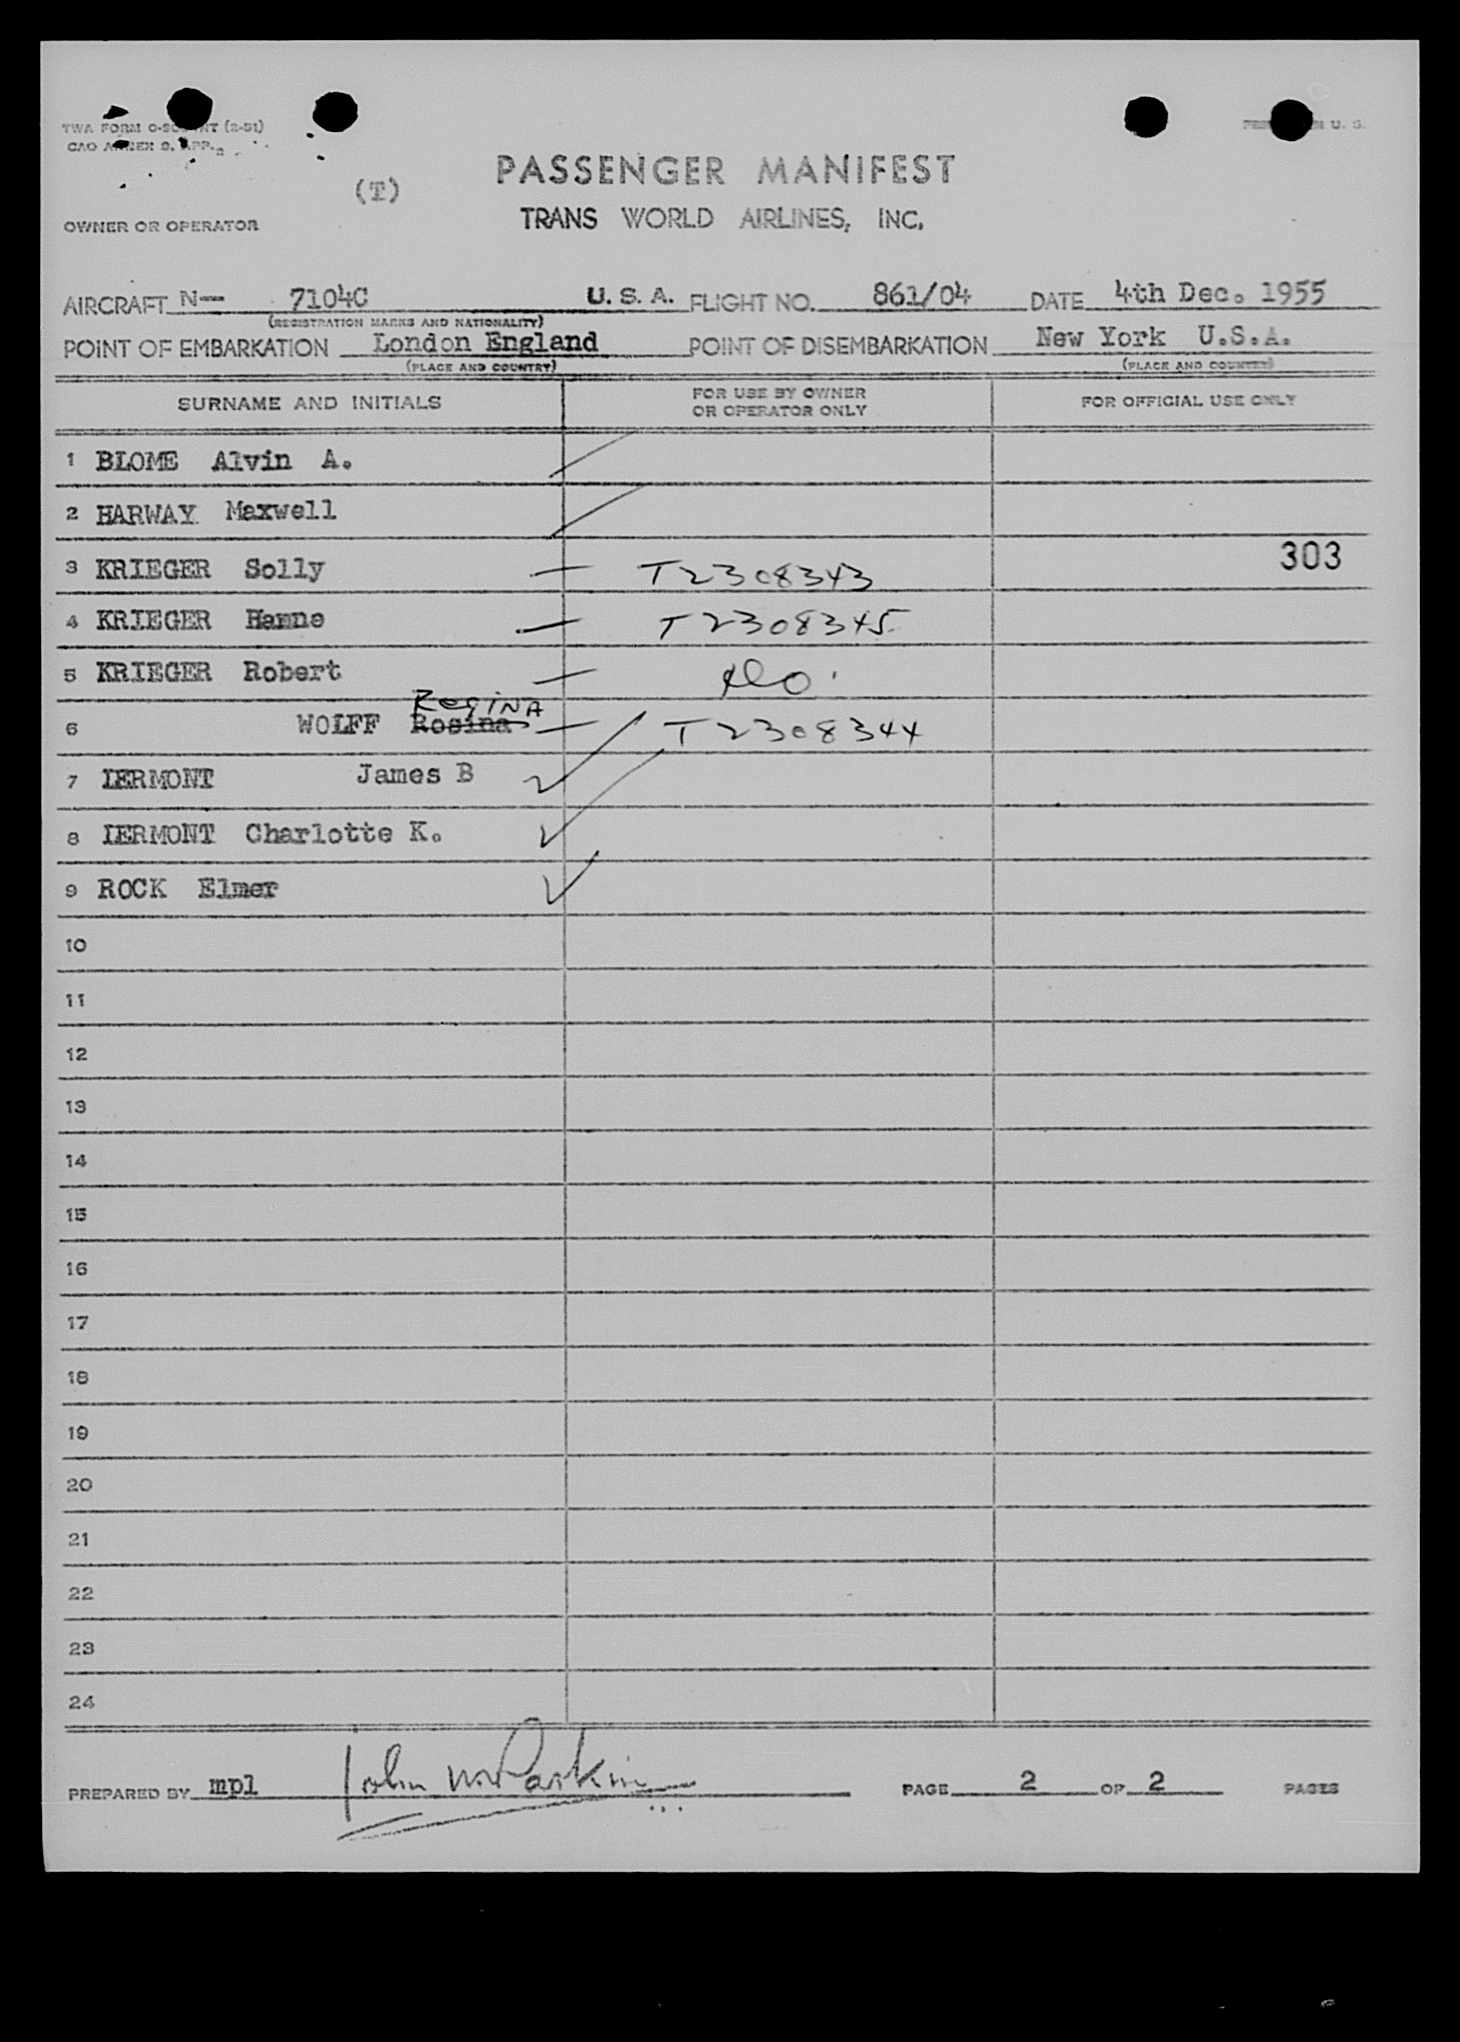 TWA FORM
(T)
PASSENGER MANIFEST
TRANS WORLD AIRLINES, INC.
OWNER OR OPERATOR
AIRCRAFT N-- 7104C U. S. A. FLIGHT NO. 861/04 DATE 4th Dec. 1955
(REGISTRATION MARKS AND NATIONALITY)
POINT OF EMBARKATION London England POINT OF DISEMBARKATION New York U.S.A.
(PLACE AND COUNTRY) (PLACE AND COUNTRY)
SURNAME AND INITIALS FOR USE BY OWNER OR OPERATOR ONLY FOR OFFICIAL USE ONLY
1 BLOME Alvin A.
2 HARWAY Maxwell
3 KRIEGER Solly T2308343 303
4 KRIEGER Hanne T2308345
5 KRIEGER Robert do.
6 WOLFF Rosina RegiNA T2308344
7 IERMONT James B
8 IERMONT Charlotte K.
9 ROCK Elmer
10
11
12
13
14
15
16
17
18
19
20
21
22
23
24
PREPARED BY mpl John PAGE 2 OF 2 PAGES